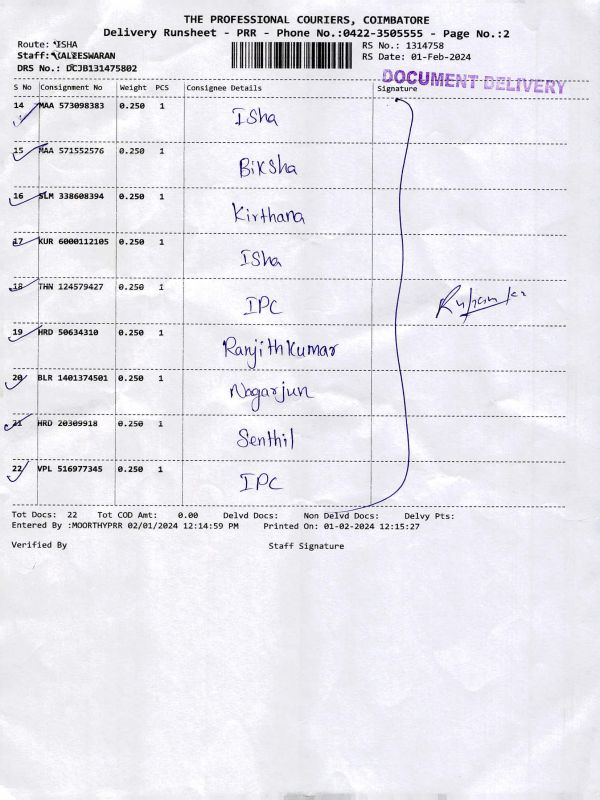 THE PROFESSIONAL COURIERS, COIMBATORE
Delivery Runsheet - PRR - Phone No.:0422-3505555 - Page No.:2
Route: ISHA
RS No.: 1314758
Staff: KALEESWARAN
RS Date: 01-Feb-2024
DRS No.: DCJB131475802
DOCUMENT DELIVERY
S No Consignment No Weight PCS Consignee Details Signature
14 MAA 573098383 0.250 1 Isha
15 MAA 571552576 0.250 1 Biksha
16 SLM 338608394 0.250 1 Kirthana
17 KUR 6000112105 0.250 1 Isha
18 THN 124579427 0.250 1 IPC
19 HRD 50634310 0.250 1 Ranjith Kumar
20 BLR 1401374501 0.250 1 Nagarjun
21 HRD 20309918 0.250 1 Senthil
22 VPL 516977345 0.250 1 IPC
Tot Docs: 22 Tot COD Amt: 0.00 Delvd Docs: Non Delvd Docs: Delvy Pts:
Entered By :MOORTHYPRR 02/01/2024 12:14:59 PM Printed On: 01-02-2024 12:15:27
Verified By Staff Signature